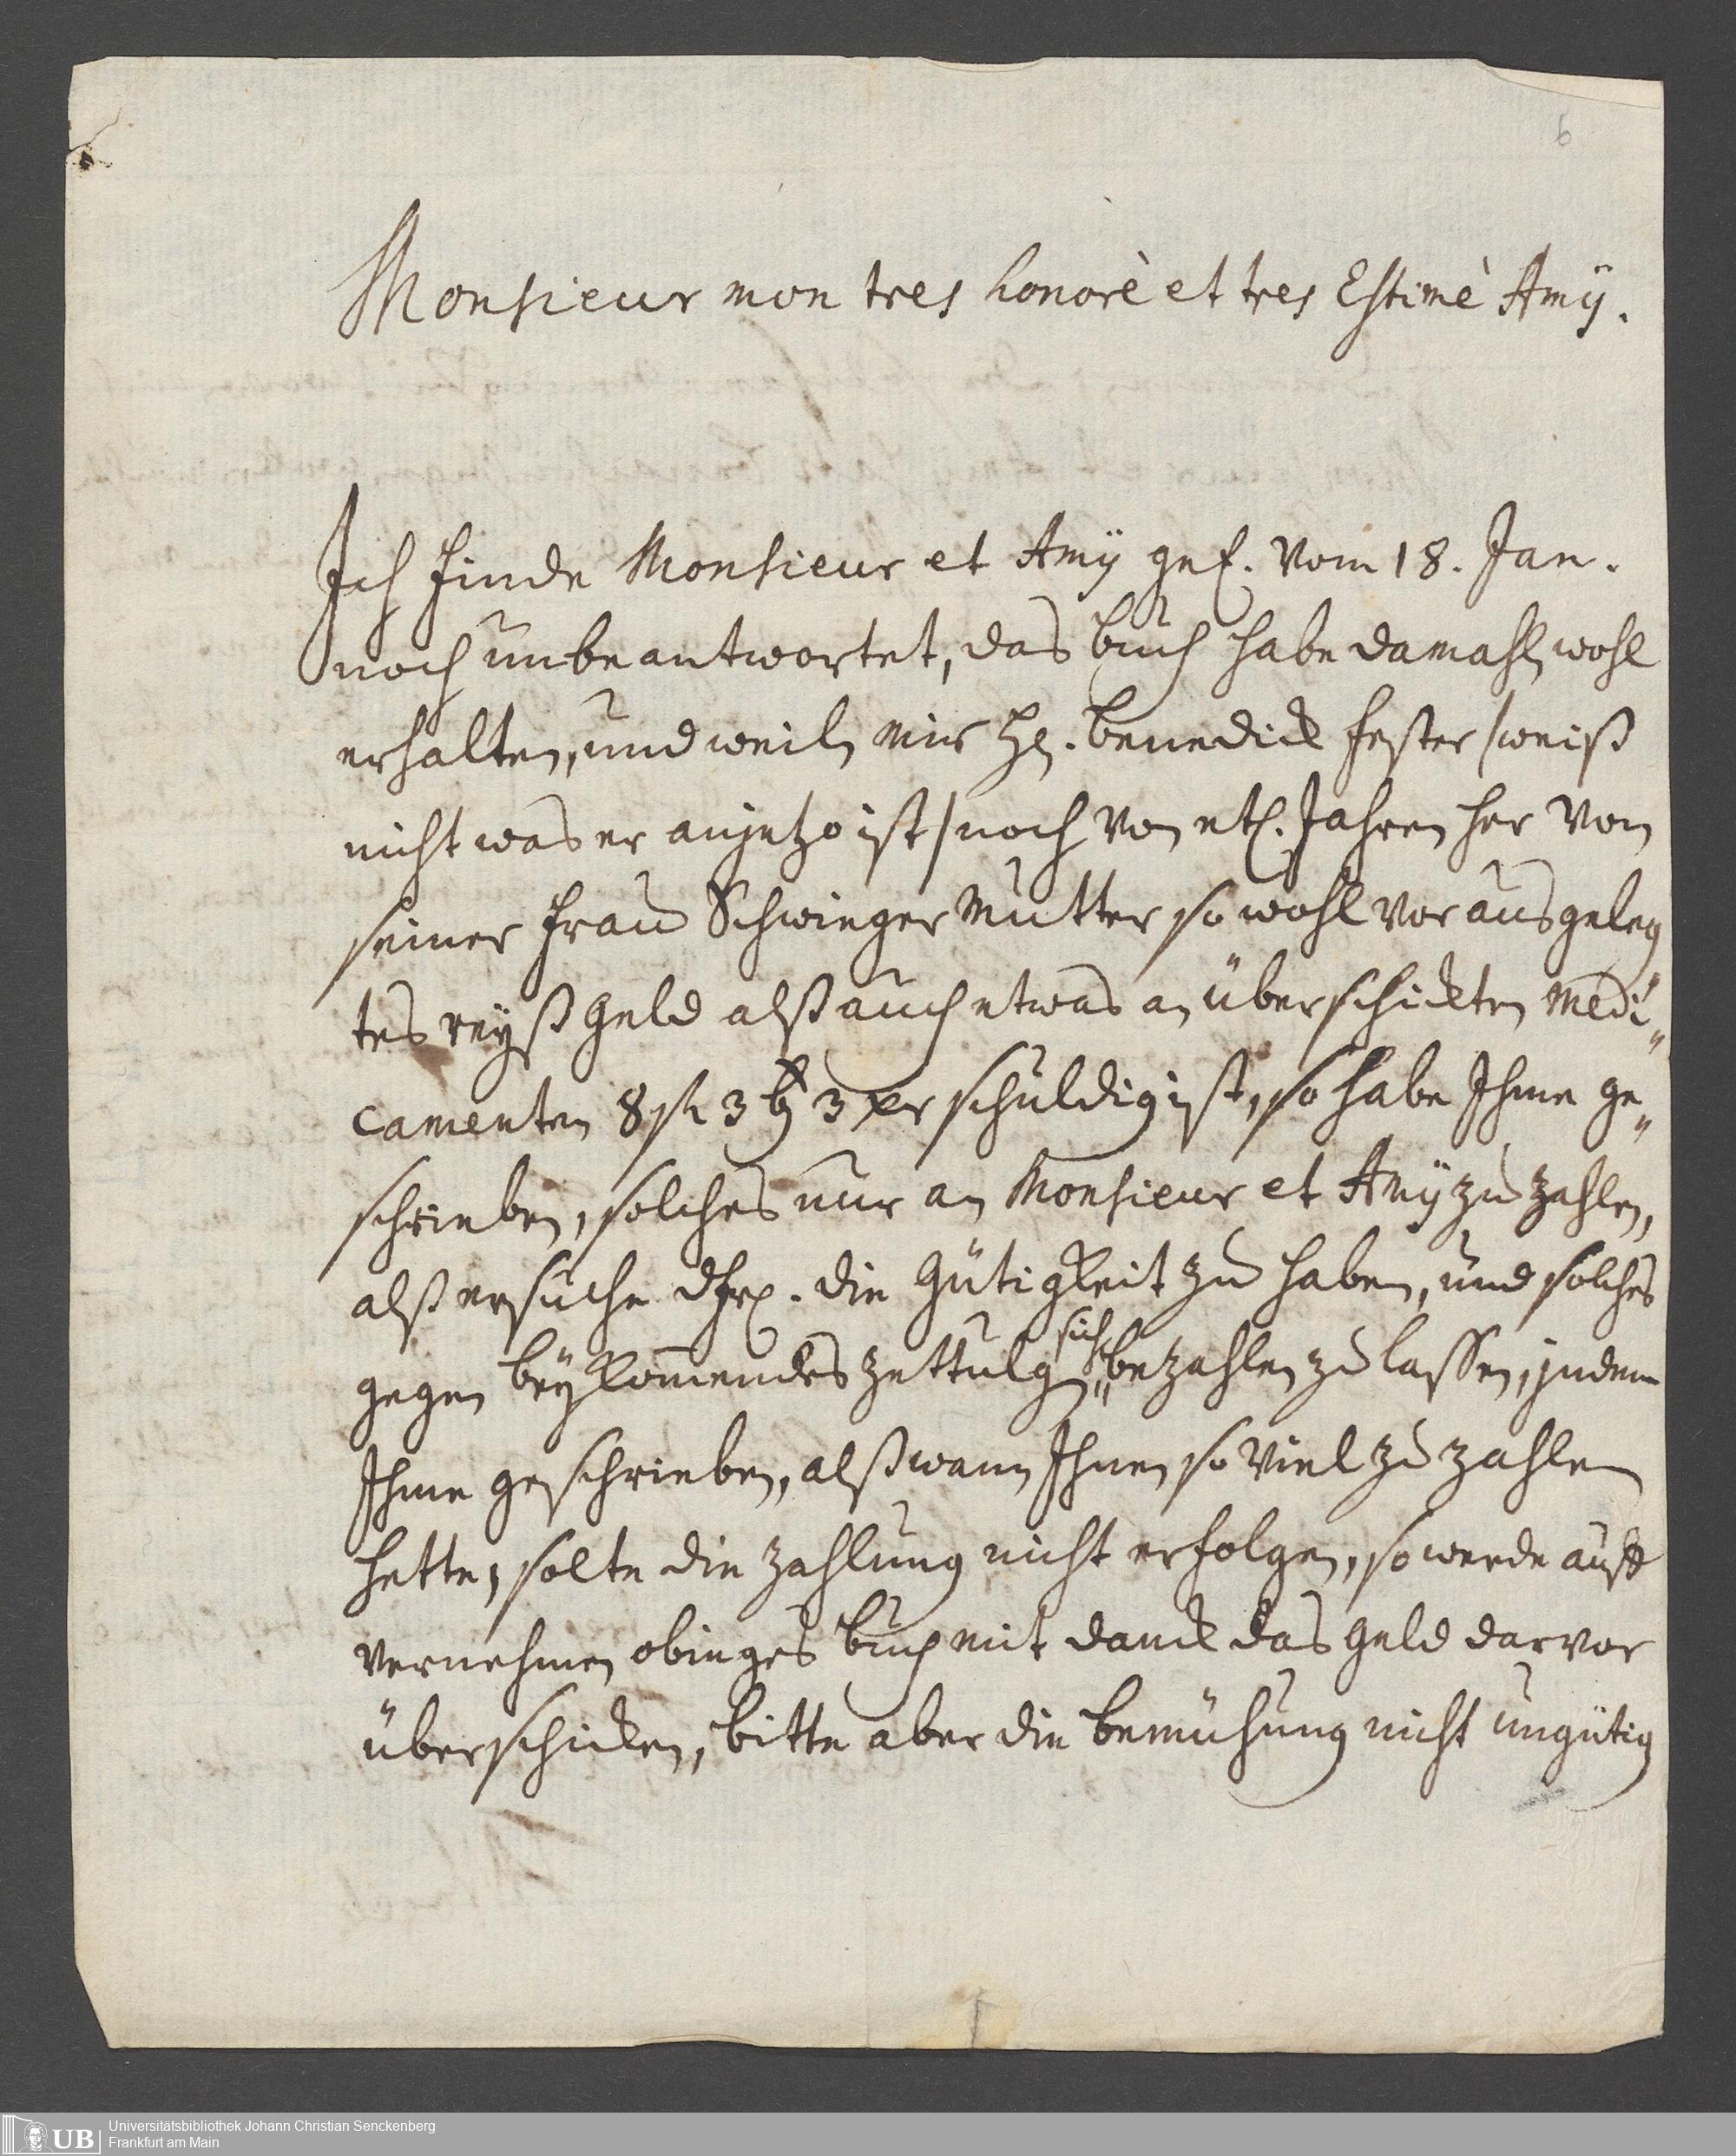 6
Monsieur mon tres honorè et tres Estimè Amÿ.
Ich finde Monsieur et Amÿ gel. vom 18. Jan.
noch unbeantwortet, das buch habe damahls wohl
erhalten, und weiln mir H. benedick fester /weiß
nicht was er anjetzo ist/ noch von etl. Jahren her von
seiner frau Schwieger Mutter so wohl vor ausgeleg
tes reyß geld alß auch etwas an überschickten Medi„
camenten 8 3 3 xr schuldig ist, so habe Ihme ge„
schrieben, solches nur an Monsieur et Amÿ zu zahlen,
alß ersuche die Gütigkeit zu haben, und solches
gegen beykom̅endes sich bezahlen zu lassen, indem
Ihme geschrieben, alß wann Ihnen so viel zu zahlen
hette, solte die Zahlung nicht erfolgen, so werde auff
vernehmen obiges buch mit danck das geld darvor
überschicken, bitte aber die bemühung nicht ungütig
UB
Universitätsbibliothek Johann Christian Senckenberg
Frankfurt am Main